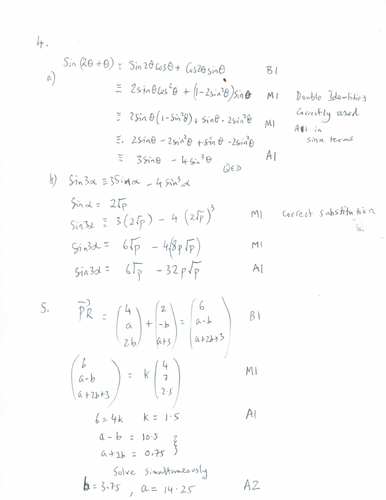 4.
a) Sin(2θ+θ) ≡ Sin2θcosθ + Cos2θsinθ B1
≡ 2sinθcos²θ + (1-2sin²θ)sinθ M1 Double Identities
≡ 2sinθ(1-sin²θ) + sinθ - 2sin³θ M1 Correctly used
≡ 2sinθ - 2sin³θ + sinθ - 2sin³θ All in sinx terms
≡ 3sinθ - 4sin³θ A1
QED
b) Sin3α ≡ 3Sinα - 4sin³α
Sinα = 2√p
Sin3α = 3(2√p) - 4(2√p)³ M1 Correct substitution
Sin3α = 6√p - 4(8p√p) M1
Sin3α = 6√p - 32p√p A1
5. PR = (4 a 2b) + (2 -b a+3) = (6 a-b a+2b+3) B1
(6 a-b a+2b+3) = k(4 7 2.5) M1
6=4k k=1.5 A1
a-b = 10.5
a+2b = 0.75
Solve simultaneously
b=3.75, a=14.25 A2